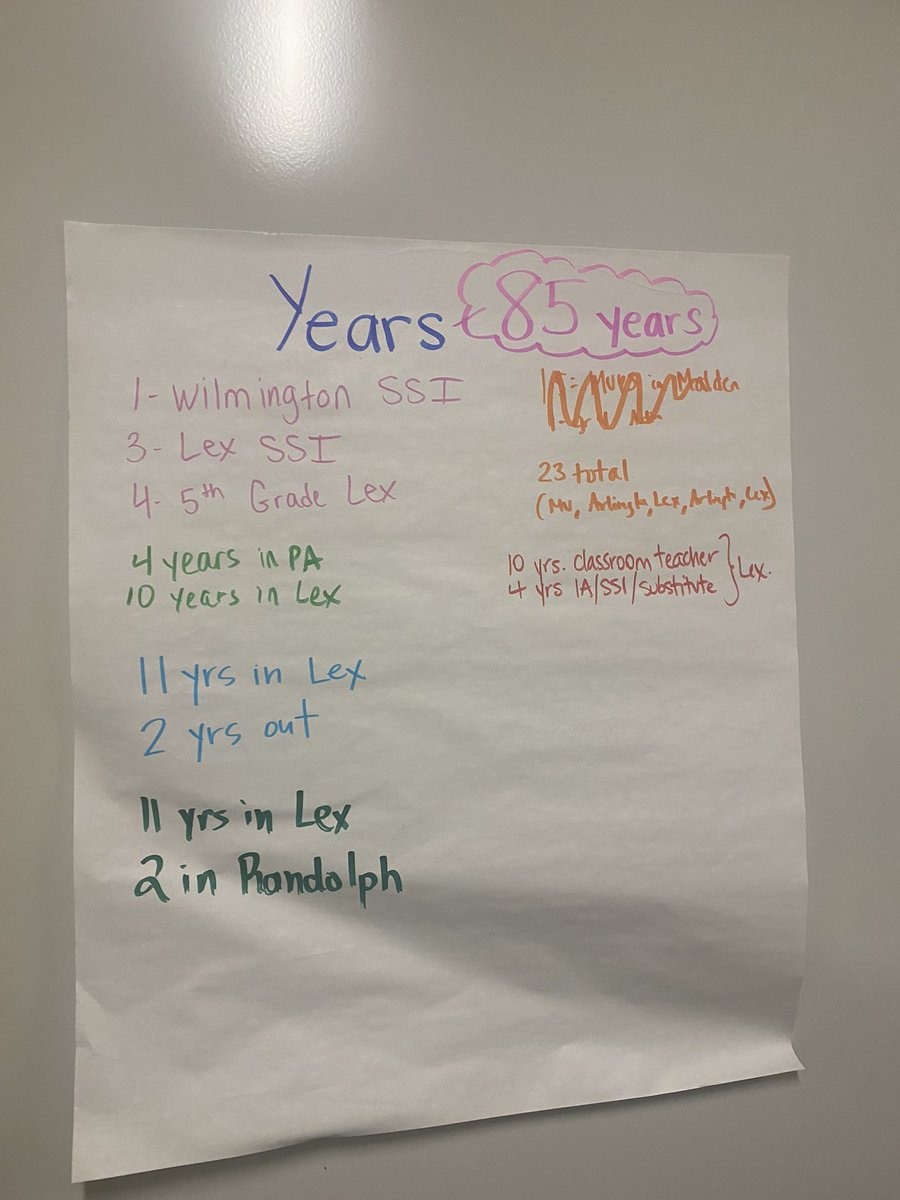 Years 85 years
1- Wilmington SSI
3- Lex SSI
4- 5th Grade Lex
4 years in PA
10 years in Lex
11 yrs in Lex
2 yrs out
11 yrs in Lex
2 in Randolph
in Malden
23 total
(MV, Arlington, Lex, Arlington, Lex)
10 yrs. classroom teacher
4 yrs IA/SSI/substitute } Lex.